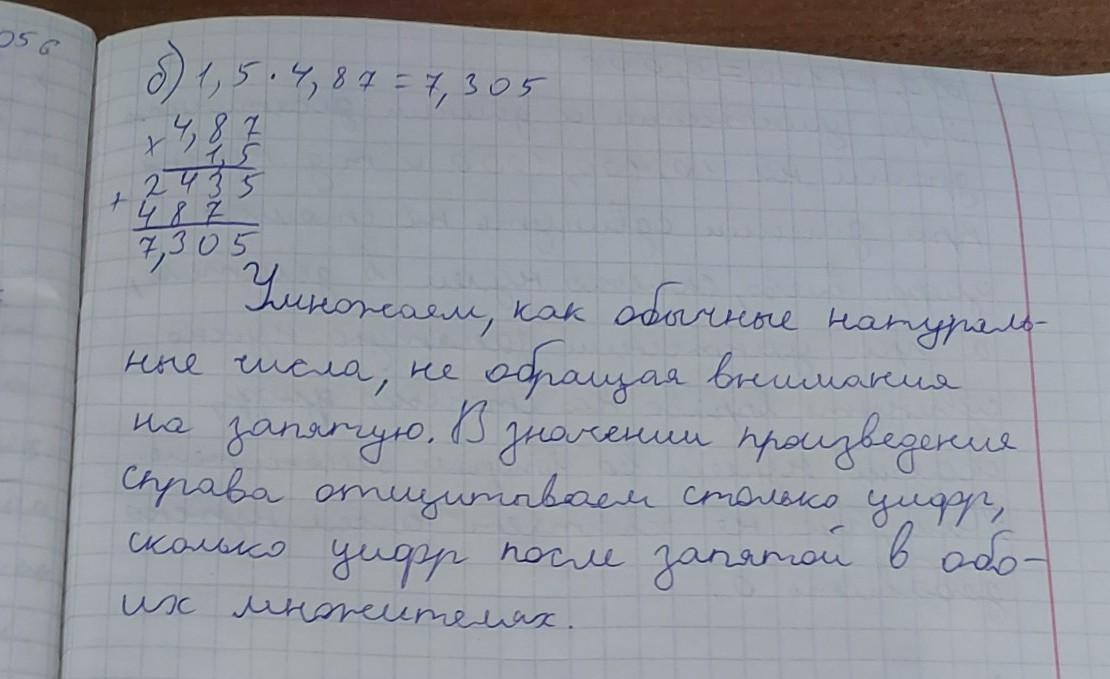 056
б) 1,5 · 4,87 = 7,305
× 4,87
1,5
+ 2435
487
7,305
Умножаем, как обычные натураль-
ные числа, не обращая внимания
на запятую. В значении произведения
справа отщитываем столько цифр,
сколько цифр после запятой в обо-
их множителях.